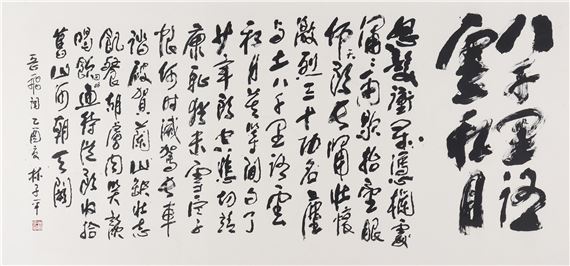 八千里路
雲和月
怒髮衝冠憑欄處
瀟瀟雨歇抬望眼
仰天長嘯壯懷
激烈三十功名塵
與土八千里路雲
和月莫等閒白了
少年頭空悲切靖
康恥猶未雪臣子
恨何時滅駕長車
踏破賀蘭山缺壯志
飢餐胡虜肉笑談
渴飲待從頭收拾
舊山河朝天闕
岳飛詞 乙酉夏 林子平